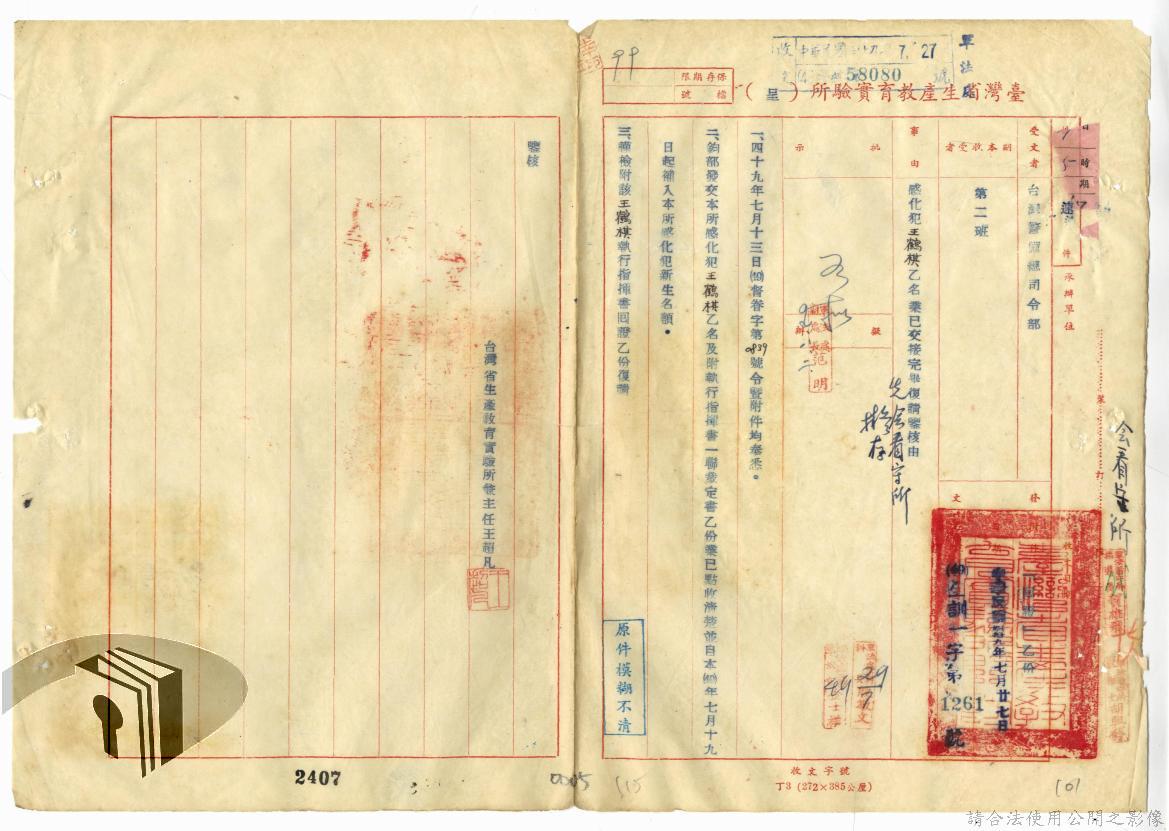 收 7. 27
58080 號
軍法處
99
保存期限
檔號
臺灣省生產教育實驗所(呈)
時期
速件
承辦單位
受文者
台灣警備總司令部
副本收受者
第二班
事由
感化犯王鶴棋乙名業已交接完畢復請鑒核由
批示
擬辦
先會看守所
擬存
會看守所
范明
一、四十九年七月十三日(49)督眷字第0839號令暨附件均奉悉。
二、鈞部發交本所感化犯王鶴棋乙名及附執行指揮書一聯裁定書乙份業已點收清楚並自本(49)年七月十九
日起補入本所感化犯新生名額。
三、謹檢附該王鶴棋執行指揮書回證乙份復請
鑒核
台灣省生產教育實驗所兼主任王超凡
文
乙份
九年七月廿七日
訓一字第1261號
29/7
原件模糊不清
收文字號
丁3 (272×385公厘)
2407
0005
115
101
請合法使用公開之影像